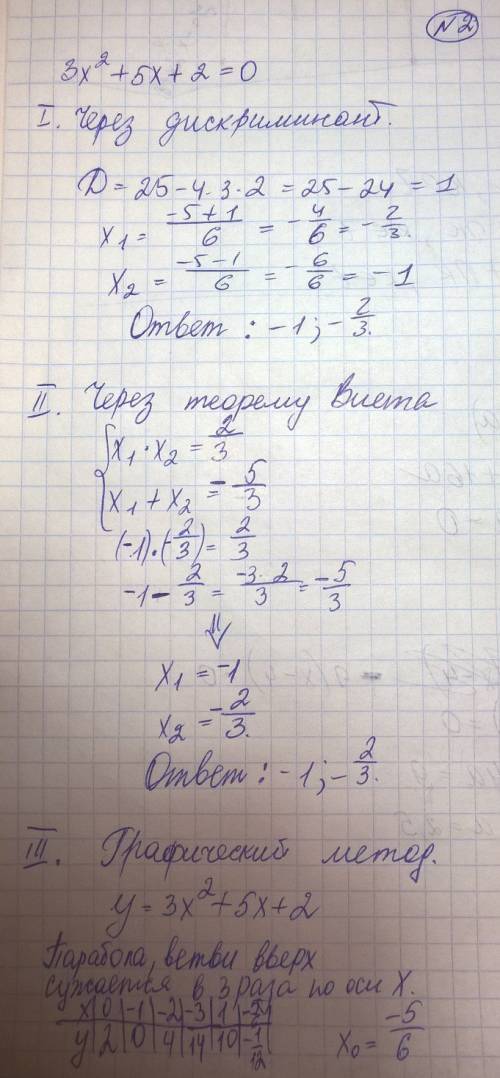 N2
3x² + 5x + 2 = 0
I. Через дискриминант.
D = 25 - 4·3·2 = 25 - 24 = 1
x₁ = (-5+1)/6 = -4/6 = -2/3.
x₂ = (-5-1)/6 = -6/6 = -1
Ответ: -1; -2/3.
II. Через теорему Виета
{x₁·x₂ = 2/3
x₁+x₂ = -5/3
(-1)·(-2/3) = 2/3
-1 - 2/3 = (-3·2)/3 = -5/3
⇓
x₁ = -1
x₂ = -2/3.
Ответ: -1; -2/3.
III. Графический метод.
y = 3x² + 5x + 2
Парабола, ветви вверх
сужается в 3 раза по оси X.
x | 0 | -1 | -2 | -3 | 1 | -5/6
y | 2 | 0 | 4 | 14 | 10 | -1/12
x₀ = -5/6